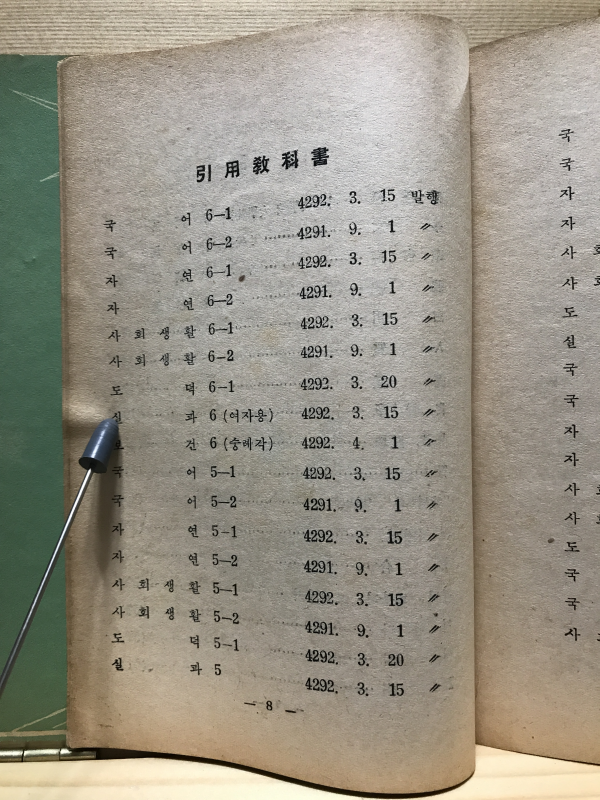 引用敎科書
국 어 6—1 4292. 3. 15 발행
국 어 6—2 4291. 9. 1 〃
자 연 6—1 4292. 3. 15 〃
자 연 6—2 4291. 9. 1 〃
사 회 생 활 6—1 4292. 3. 15 〃
사 회 생 활 6-2 4291. 9. 1 〃
도 덕 6—1 4292. 3. 20 〃
실 과 6 (여자용) 4292. 3. 15 〃
건 6 (숭례각) 4292. 4. 1 〃
국 어 5—1 4292. 3. 15 〃
국 어 5—2 4291. 9. 1 〃
자 연 5-1 4292. 3. 15 〃
자 연 5—2 4291. 9. 1 〃
사 회 생 활 5—1 4292. 3. 15 〃
사 회 생 활 5—2 4291. 9. 1 〃
도 덕 5—1 4292. 3. 20 〃
실 과 5 4292. 3. 15 〃
— 8 —
국
국
자
자
사
사
도
실
국
국
자
자
사
사
도
국
국
사